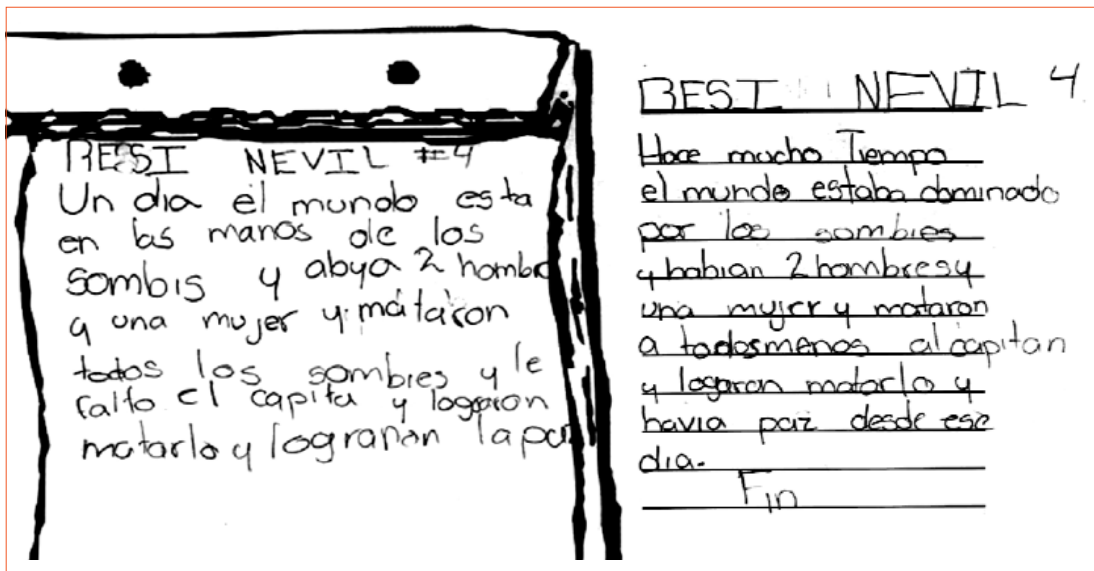 RESI NEVIL #4
Un dia el mundo esta
en las manos de los
sombis y abya 2 hombre
y una mujer y mataron
todos los sombies y le
falto el capita y logaron
matarlo y lograran la paz
RESI NEVIL 4
Hace mucho Tiempo
el mundo estaba dominado
por los sombies
y habian 2 hombres y
una mujer y mataron
a todosmenos al capitan
y logaron matarlo y
havia paz desde ese
dia.
Fin